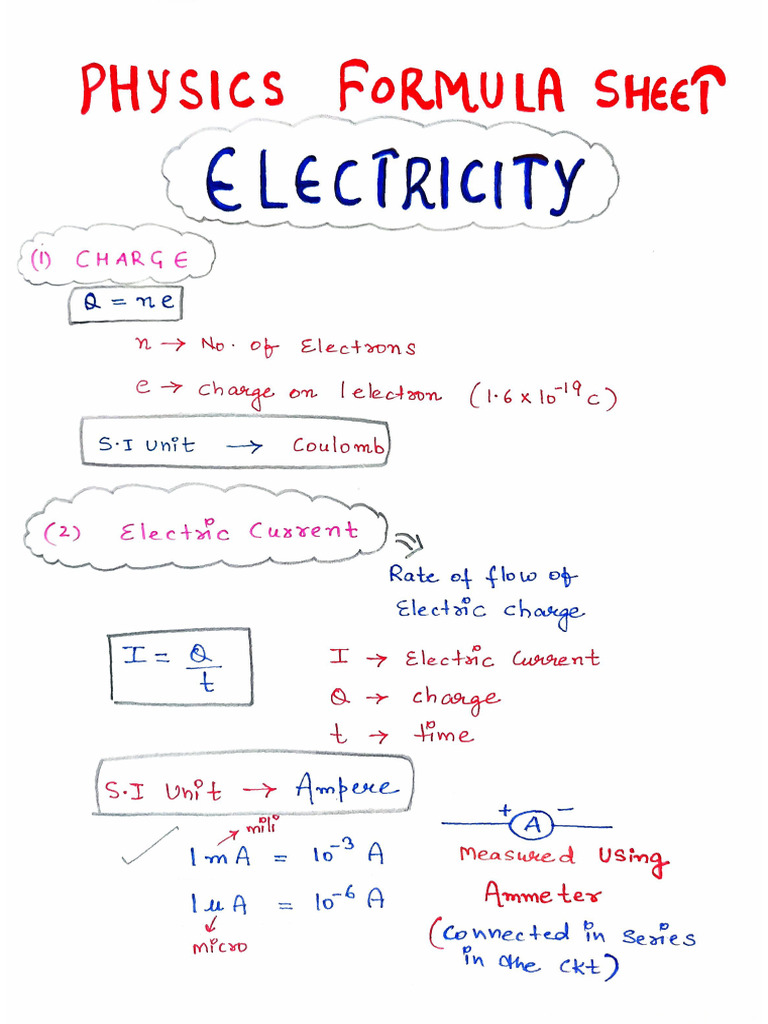 PHYSICS FORMULA SHEET
ELECTRICITY
(1) CHARGE
Q = ne
n → No. of Electrons
e → charge on 1 electron (1.6 × 10⁻¹⁹ C)
S.I Unit → Coulomb
(2) Electric Current
Rate of flow of
Electric charge
I = Q/t
I → Electric Current
Q → charge
t → time
S.I Unit → Ampere
mili
1 mA = 10⁻³ A
1 μA = 10⁻⁶ A
micro
+ A −
Measured Using
Ammeter
(Connected in Series
in the ckt)